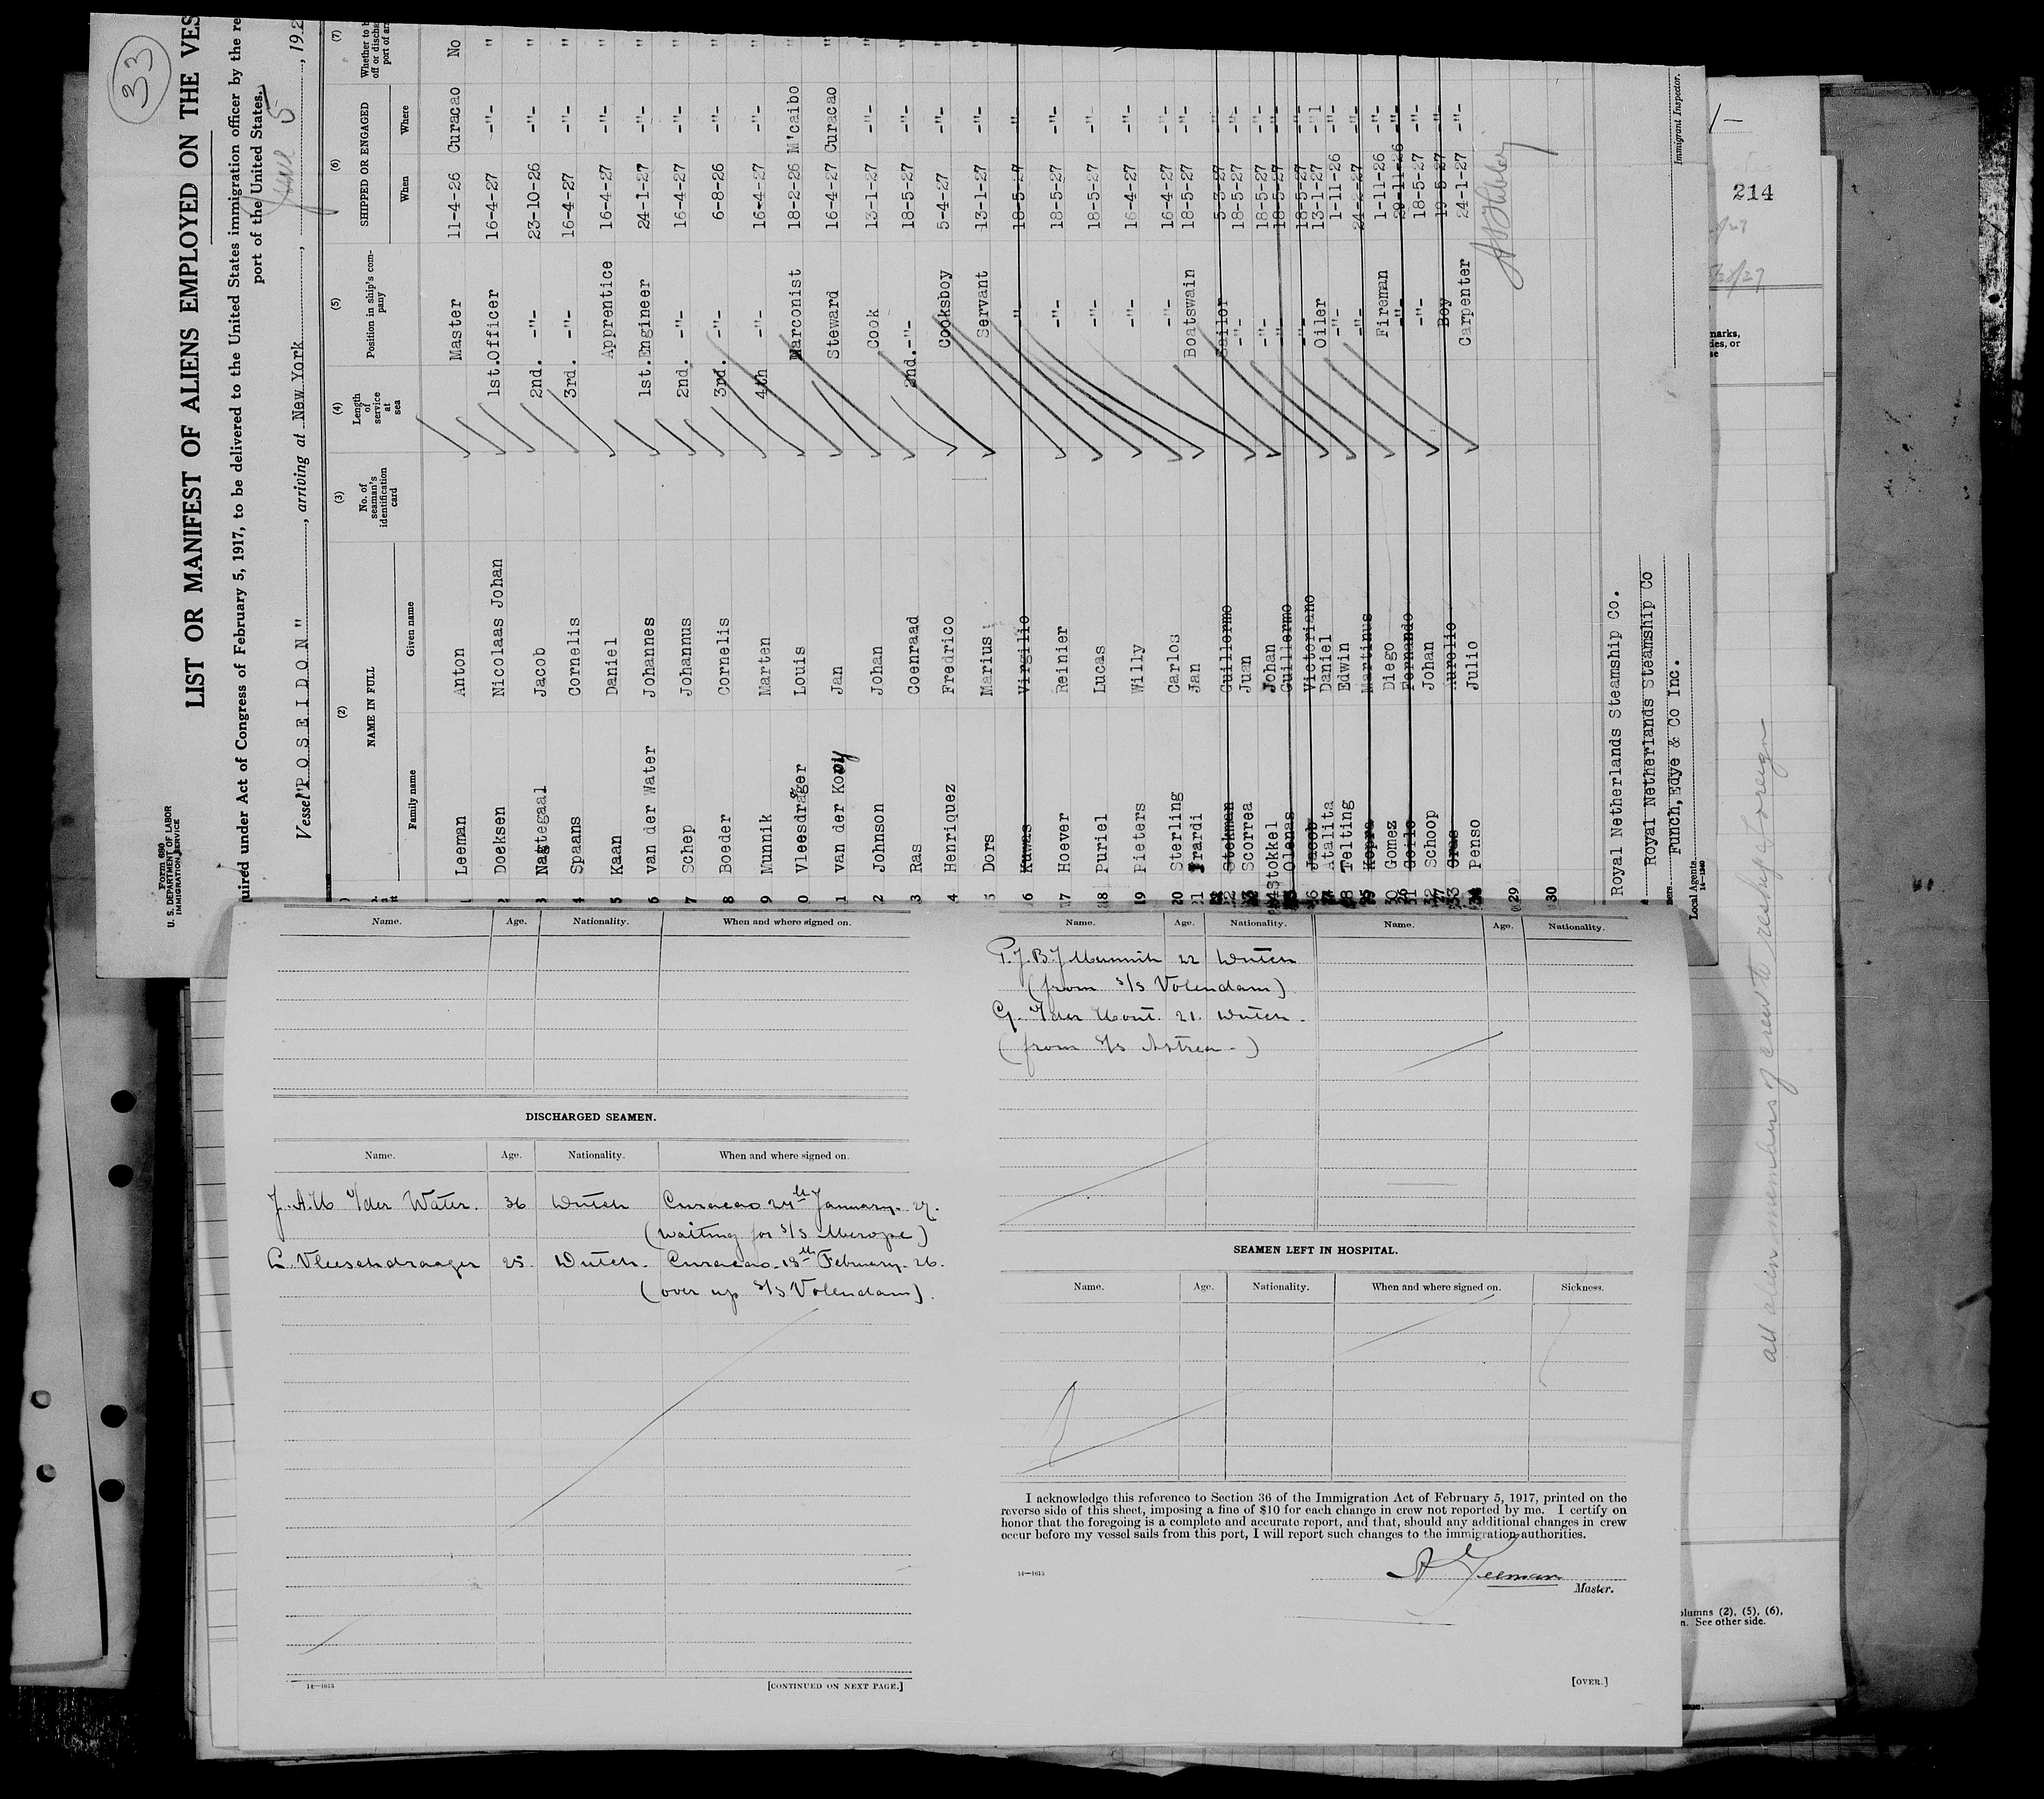 33
Form 680
U. S. DEPARTMENT OF LABOR
IMMIGRATION SERVICE
LIST OR MANIFEST OF ALIENS EMPLOYED ON THE VES
quired under Act of Congress of February 5, 1917, to be delivered to the United States immigration officer by the re
port of the United States.
Vessel "POSEIDON", arriving at New York, June 5, 192
(2) (3) (4) (5) (6) (7)
NAME IN FULL No. of seaman's identification card Length of service at sea Position in ship's company SHIPPED OR ENGAGED Whether to
Family name Given name When Where
Leeman Anton Master 11-4-26 Curacao No
Doeksen Nicolaas Johan 1st.Officer 16-4-27 -"- "
3 Nagtegaal Jacob 2nd. -"- 23-10-26 -"- "
4 Spaans Cornelis 3rd. -"- 16-4-27 -"- "
5 Kaan Daniel Apprentice 16-4-27 -"- "
6 van der Water Johannes 1st.Engineer 24-1-27 -"- "
7 Schep Johannus 2nd. -"- 16-4-27 -"- "
8 Boeder Cornelis 3rd. -"- 6-8-26 -"- "
9 Munnik Marten 4th -"- 16-4-27 -"- "
0 Vleesdrager Louis Marconist 18-2-26 M'caibo "
1 van der Kooy Jan Steward 16-4-27 Curacao "
2 Johnson Johan Cook 13-1-27 -"- "
3 Ras Coenraad 2nd. -"- 18-5-27 -"- "
4 Henriquez Fredrico Cooksboy 5-4-27 -"- "
5 Dors Marius Servant 13-1-27 -"- "
6 Kuwas Virgilio -"- 18-5-27 -"-
17 Hoever Reinier -"- 18-5-27 -"-
18 Puriel Lucas -"- 18-5-27 -"-
19 Pieters Willy -"- 16-4-27 -"-
20 Sterling Carlos -"- 16-4-27 -"-
21 Irardi Jan Boatswain 18-5-27 -"-
Stekman Guillermo Sailor 5-3-27
Scorrea Juan -"- 18-5-27 -"-
Stokkel Johan -"- 18-5-27 -"-
Olenas Guillermo -"- 18-5-27 -"-
Jacob Victoriano -"- 18-5-27 -"-
Atalita Daniel Oiler 13-1-27
Telting Edwin -"- 1-11-26 -"-
Kopra Martinus -"- 24-2-27 -"-
Gomez Diego Fireman 1-11-26 -"-
Fernando -"- 29-11-26 -"-
Schoop Johan -"- 18-5-27 -"-
Aurelio Boy 19-5-27 -"-
Penso Julio Carpenter 24-1-27 -"-
29
30
Royal Netherlands Steamship Co.
Royal Netherlands Steamship Co
Funch, Edye & Co Inc.
Local Agents
14—1240
Immigrant Inspector.
214
marks,
Name. Age. Nationality. When and where signed on.
DISCHARGED SEAMEN.
Name. Age. Nationality. When and where signed on.
v/der Water. 36 Dutch Curacao 24th January. 27.
(waiting for S/S Merope)
L. Vleeschdraager 25. Dutch. Curacao. 18th February. 26.
(over up S/S Volendam).
14—1613 [CONTINUED ON NEXT PAGE.]
Name. Age. Nationality. Name. Age. Nationality.
Munnik 22 Dutch
(from S/S Volendam)
G. v/der Hout. 21. Dutch.
(from S/S Astrea)
SEAMEN LEFT IN HOSPITAL.
Name. Age. Nationality. When and where signed on. Sickness.
I acknowledge this reference to Section 36 of the Immigration Act of February 5, 1917, printed on the
reverse side of this sheet, imposing a fine of $10 for each change in crew not reported by me. I certify on
honor that the foregoing is a complete and accurate report, and that, should any additional changes in crew
occur before my vessel sails from this port, I will report such changes to the immigration authorities.
A Leeman
Master.
14—1613
[OVER.]
all alien members of crew to reship foreign
olumns (2), (5), (6),
n. See other side.